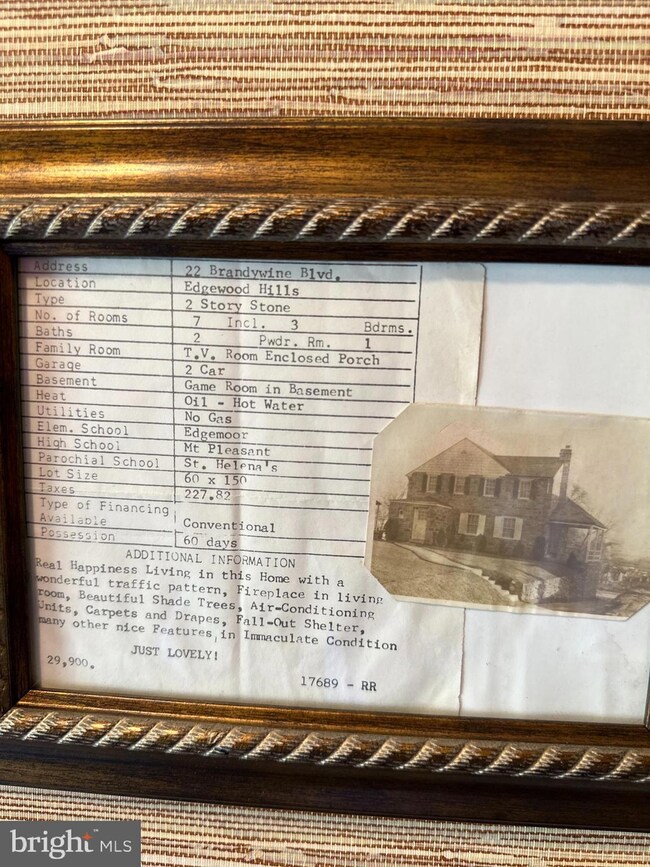 Address 22 Brandywine Blvd.
Location Edgewood Hills
Type 2 Story Stone
No. of Rooms 7 Incl. 3 Bdrms.
Baths 2 Pwdr. Rm. 1
Family Room T.V. Room Enclosed Porch
Garage 2 Car
Basement Game Room in Basement
Heat Oil - Hot Water
Utilities No Gas
Elem. School Edgemoor
High School Mt Pleasant
Parochial School St. Helena's
Lot Size 60 x 150
Taxes 227.82
Type of Financing
Available Conventional
Possession 60 days
ADDITIONAL INFORMATION
Real Happiness Living in this Home with a
wonderful traffic pattern, Fireplace in living
room, Beautiful Shade Trees, Air-Conditioning
Units, Carpets and Drapes, Fall-Out Shelter,
many other nice Features, in Immaculate Condition
JUST LOVELY!
29,900.
17689 - RR
bright MLS